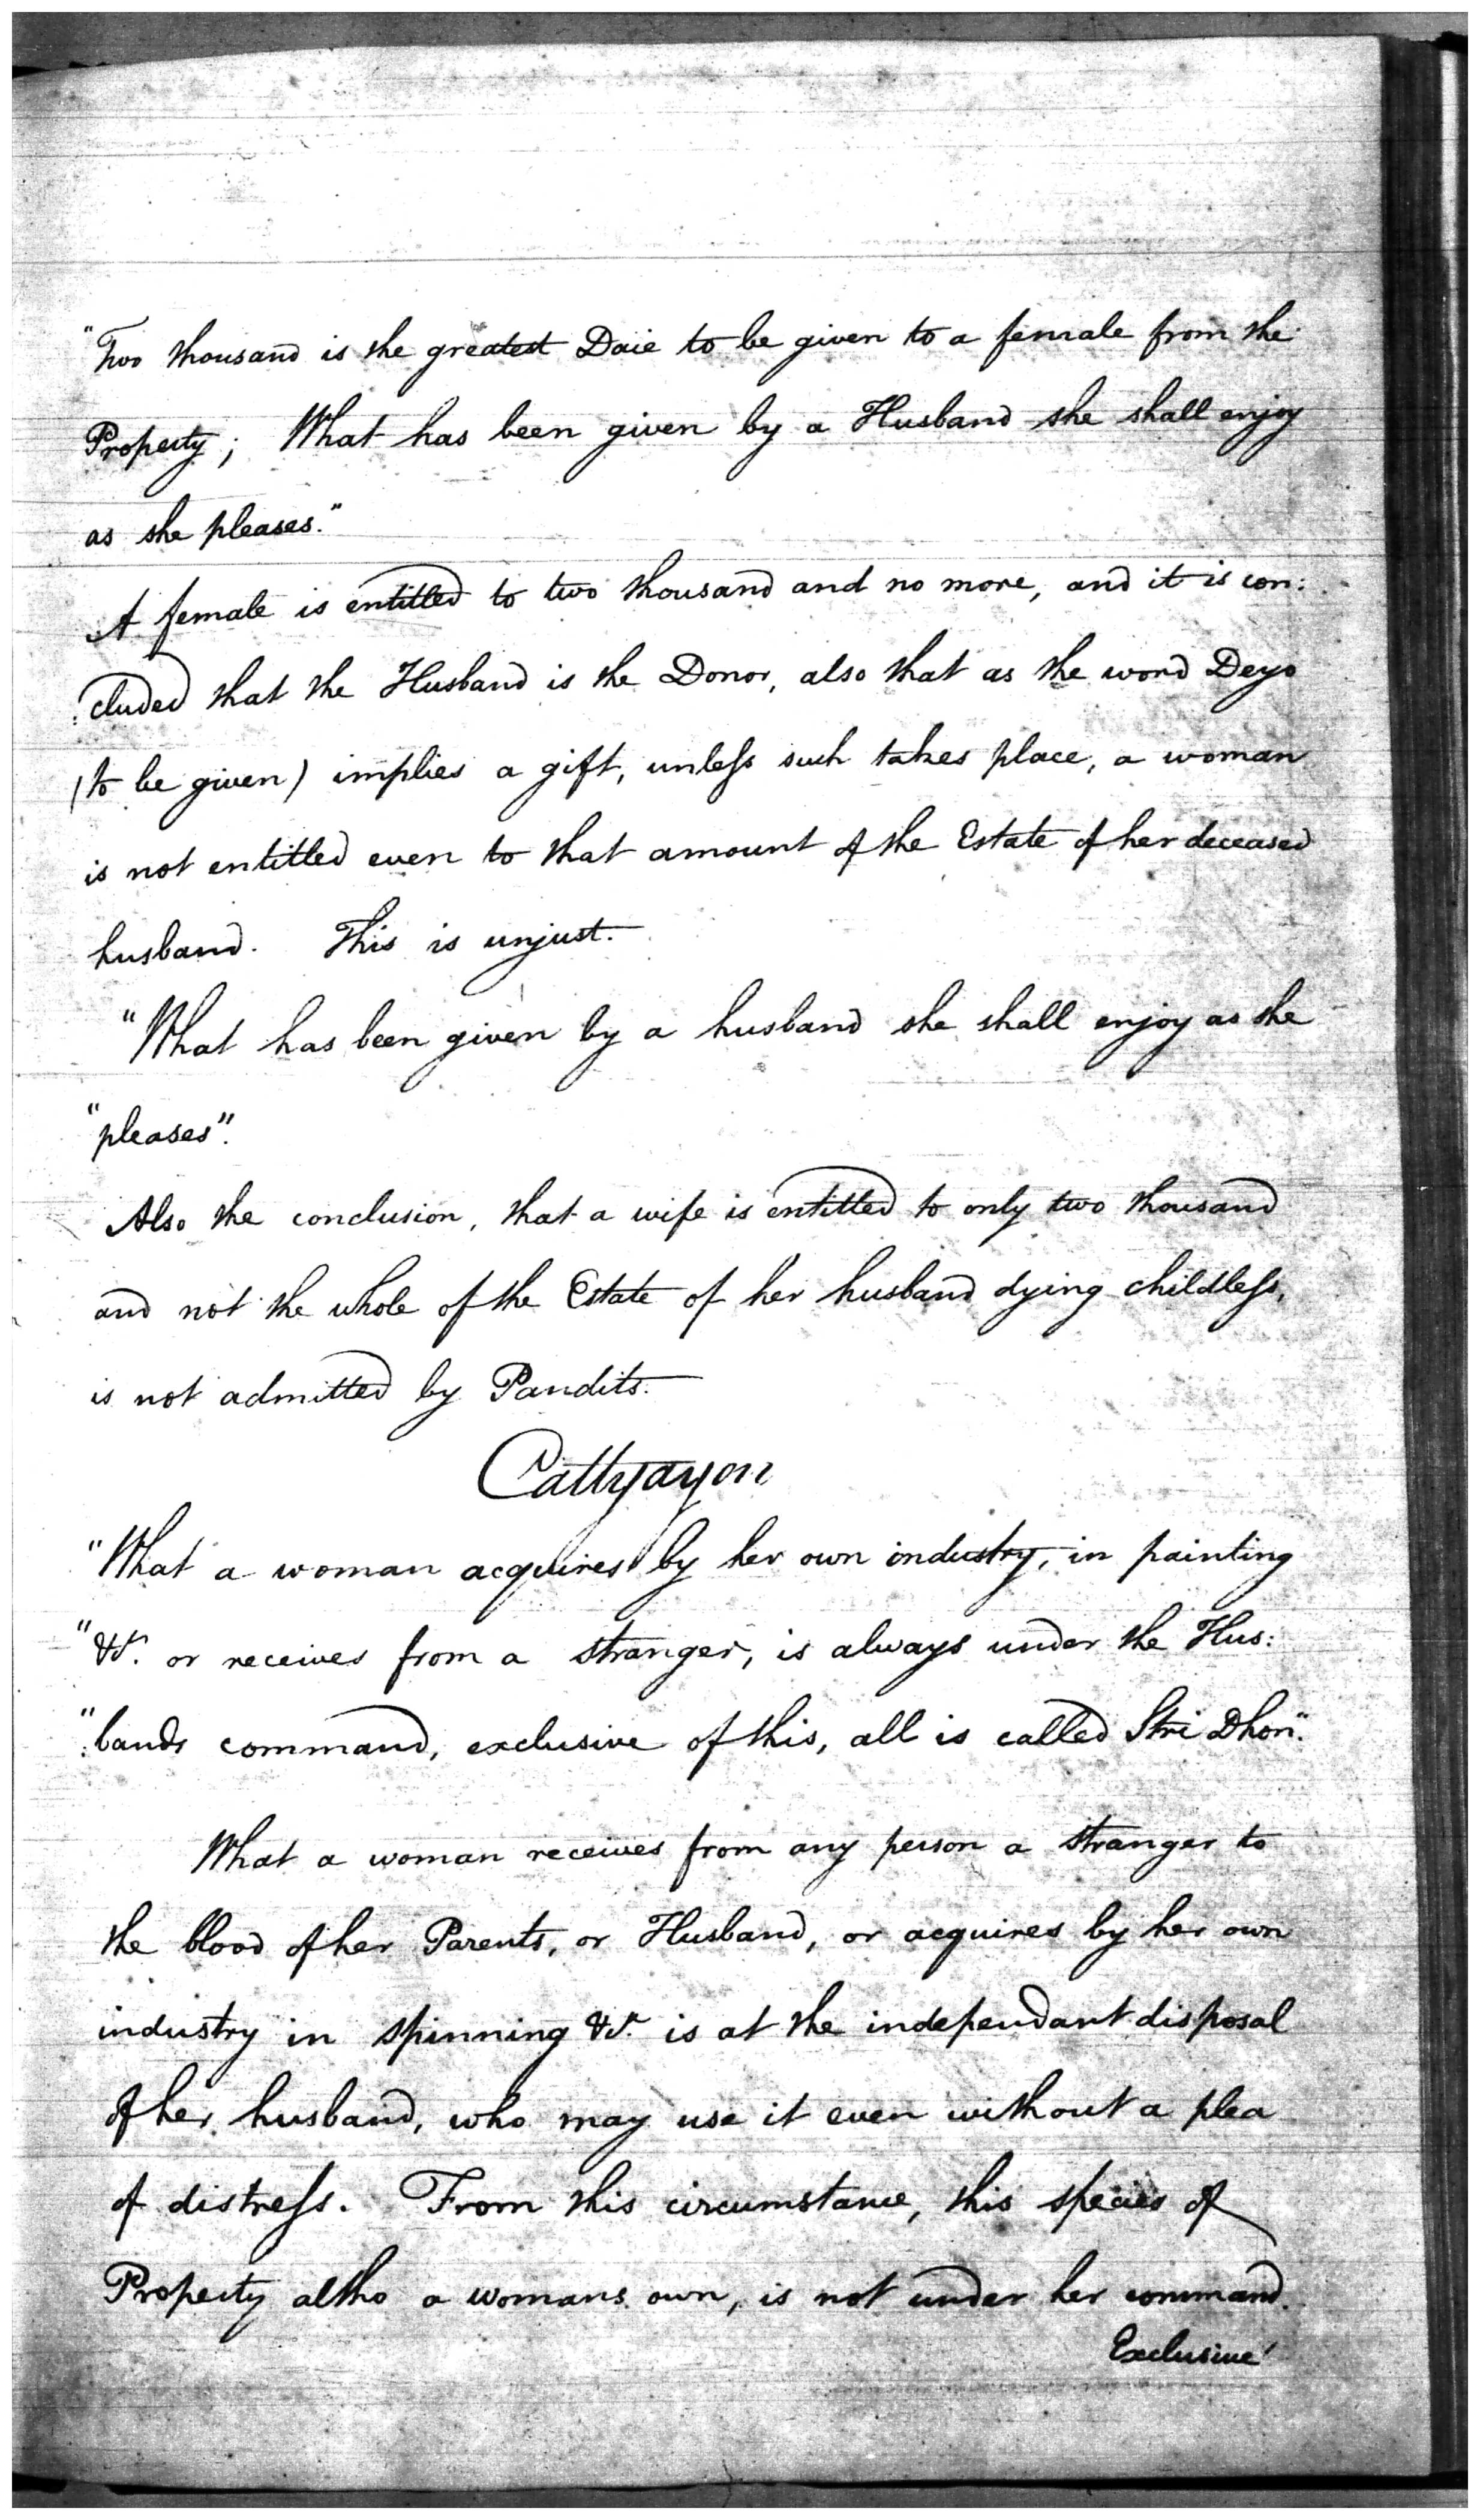 "Two thousand is the greatest Daie to be given to a female from the
Property; What has been given by a Husband she shall enjoy
as she pleases."
A female is entitled to two thousand and no more, and it is con:
:cluded that the Husband is the Donor, also that as the word Deyo
(to be given) implies a gift, unless such takes place, a woman
is not entitled even to that amount of the Estate of her deceased
husband. This is unjust.
"What has been given by a husband she shall enjoy as she
"pleases".
Also the conclusion, that a wife is entitled to only two thousand
and not the whole of the Estate of her husband dying childless,
is not admitted by Pandits.
Cattyayon
"What a woman acquires by her own industry, in painting
"&c. or receives from a stranger, is always under the Hus:
":bands command, exclusive of this, all is called Stri Dhon".
What a woman receives from any person a stranger to
the blood of her Parents, or Husband, or acquires by her own
industry in spinning &c. is at the independant disposal
of her husband, who may use it even without a plea
of distress. From this circumstance, this species of
Property altho a womans own, is not under her command.
Exclusive